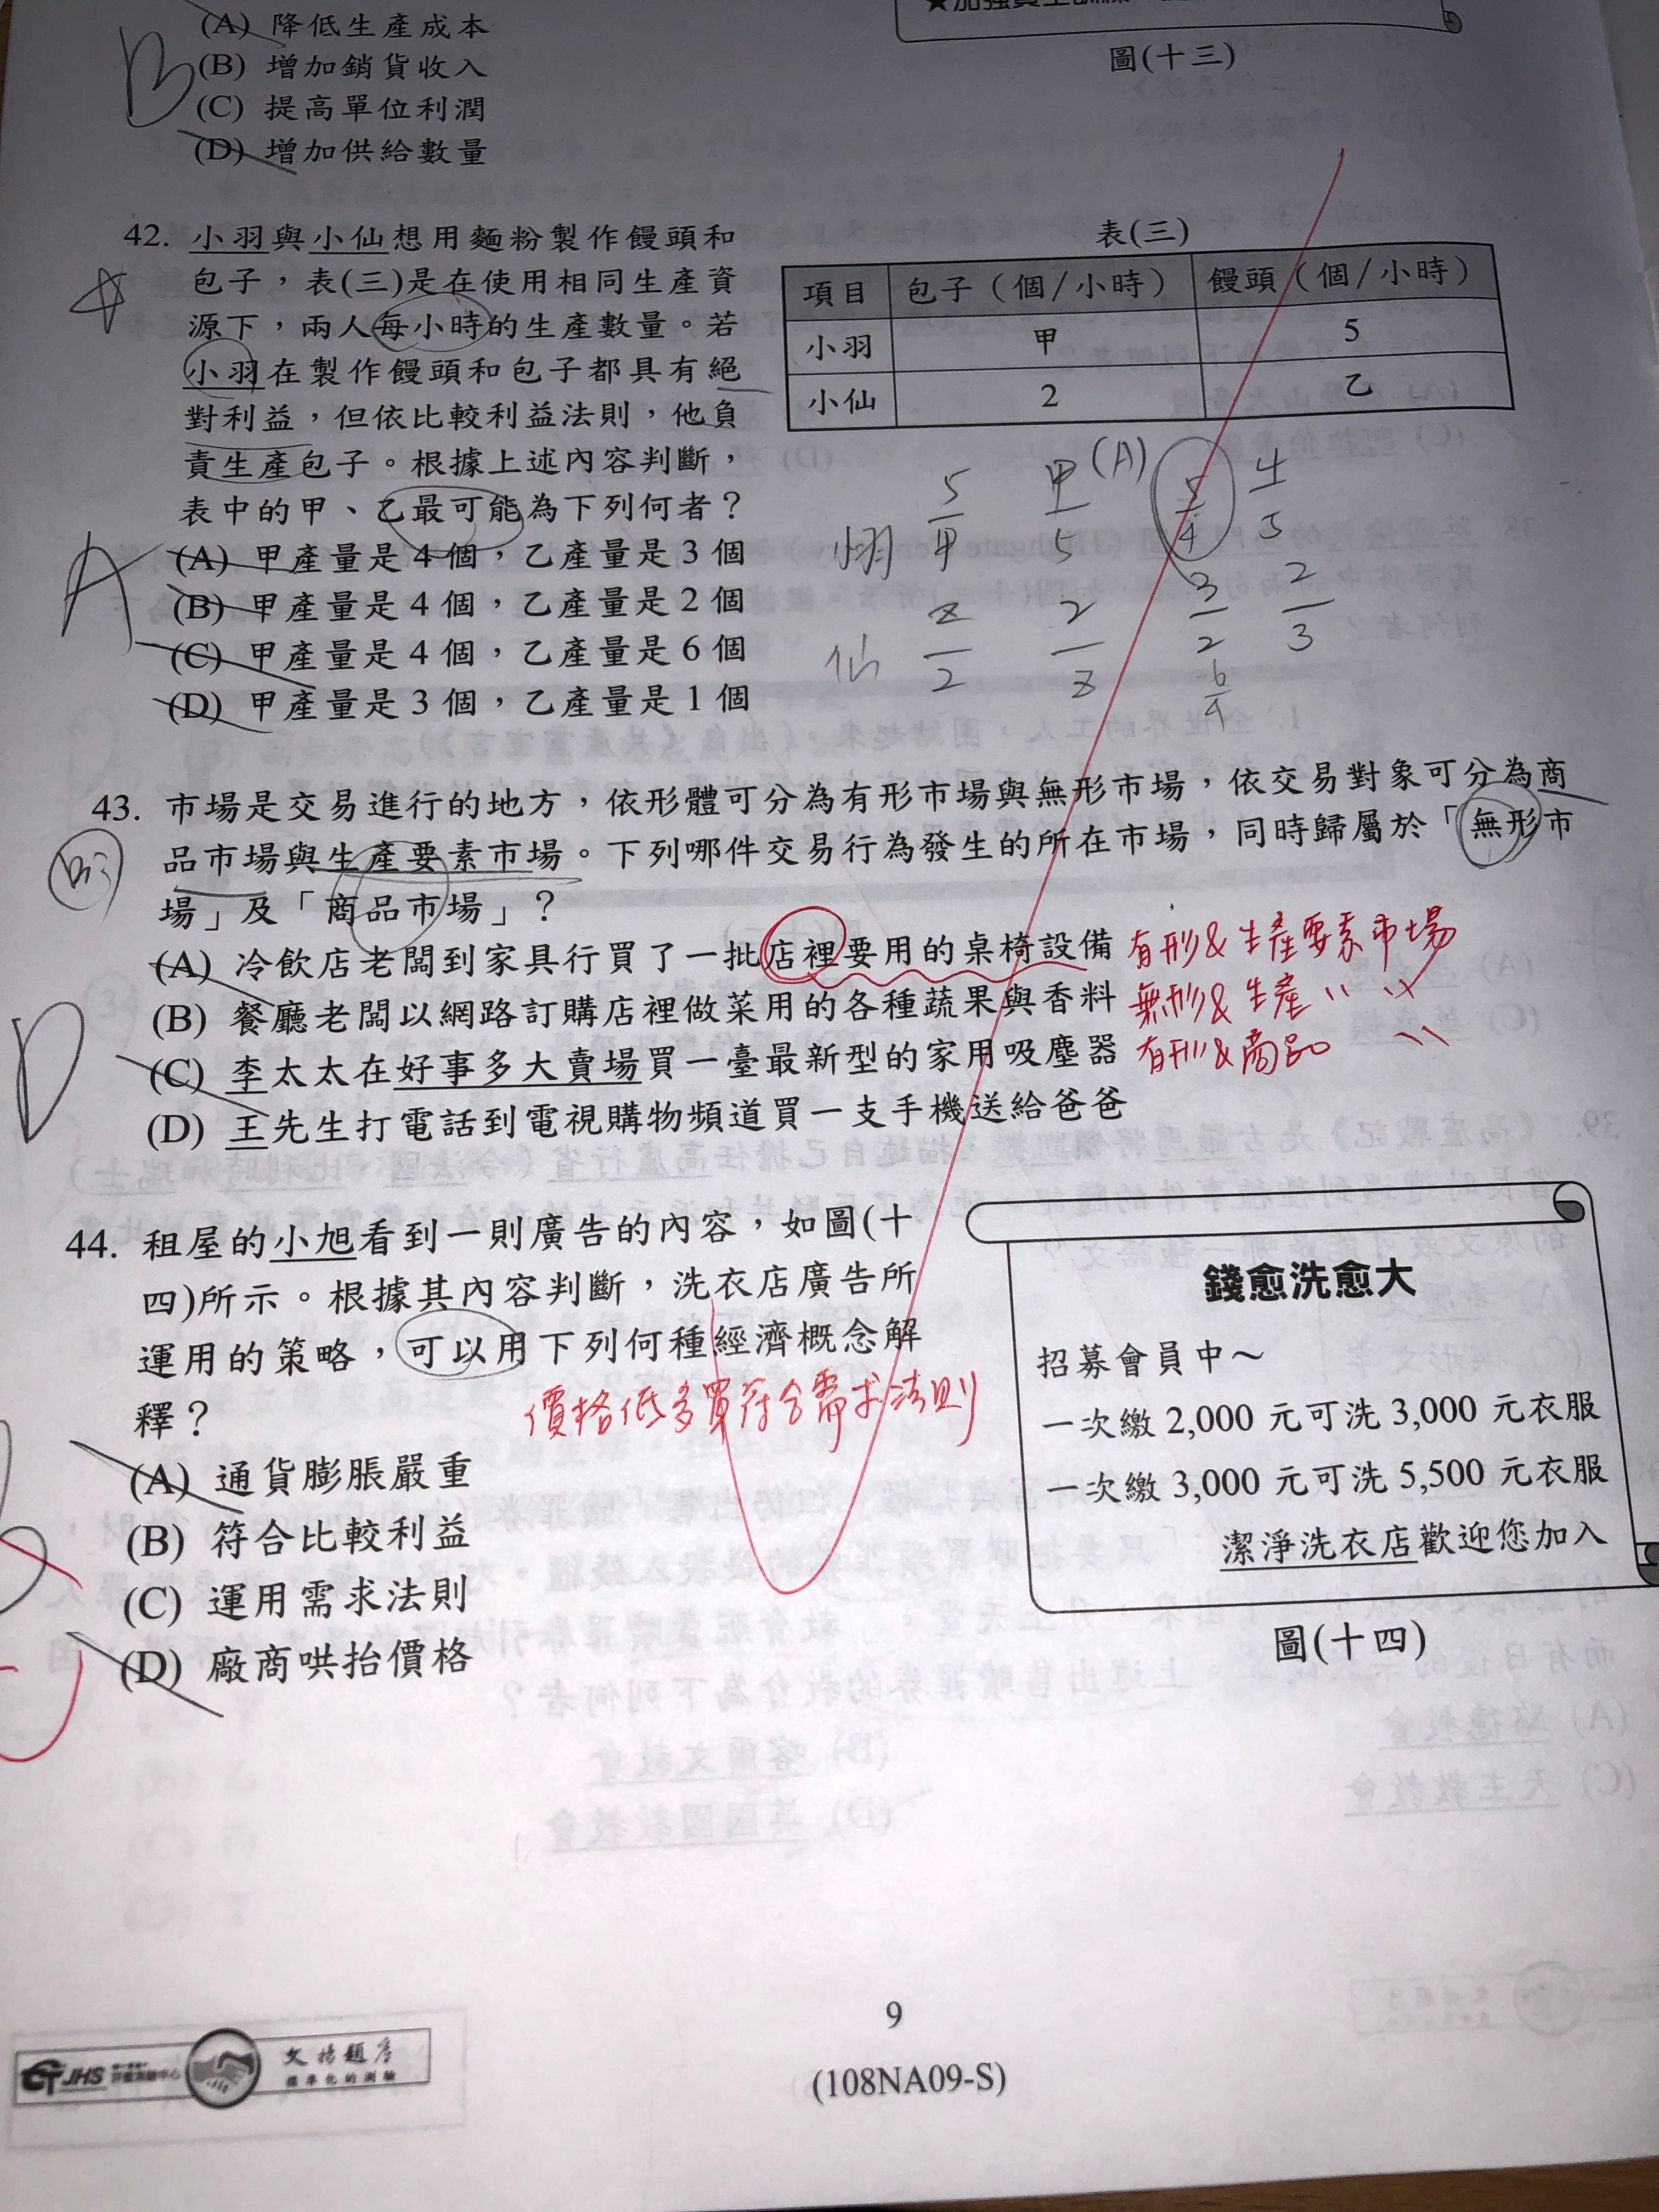 (A) 降低生產成本
(B) 增加銷貨收入
(C) 提高單位利潤
(D) 增加供給數量
B
圖(十三)
42. 小羽與小仙想用麵粉製作饅頭和
包子，表(三)是在使用相同生產資
源下，兩人每小時的生產數量。若
小羽在製作饅頭和包子都具有絕
對利益，但依比較利益法則，他負
責生產包子。根據上述內容判斷，
表中的甲、乙最可能為下列何者？
(A) 甲產量是 4 個，乙產量是 3 個
(B) 甲產量是 4 個，乙產量是 2 個
(C) 甲產量是 4 個，乙產量是 6 個
(D) 甲產量是 3 個，乙產量是 1 個
A
表(三)
項目 包子（個/小時） 饅頭（個/小時）
小羽 甲 5
小仙 2 乙
5/甲 甲/5 (A) 5/4 4/5
仙 乙/2 2/乙 3/2 2/3
6/4
43. 市場是交易進行的地方，依形體可分為有形市場與無形市場，依交易對象可分為商
品市場與生產要素市場。下列哪件交易行為發生的所在市場，同時歸屬於「無形市
場」及「商品市場」？
(A) 冷飲店老闆到家具行買了一批店裡要用的桌椅設備 有形&生產要素市場
(B) 餐廳老闆以網路訂購店裡做菜用的各種蔬果與香料 無形&生產〃 〃
(C) 李太太在好事多大賣場買一臺最新型的家用吸塵器 有形&商品 〃
(D) 王先生打電話到電視購物頻道買一支手機送給爸爸
D
44. 租屋的小旭看到一則廣告的內容，如圖(十
四)所示。根據其內容判斷，洗衣店廣告所
運用的策略，可以用下列何種經濟概念解
釋？
價格低多買符合需求法則
(A) 通貨膨脹嚴重
(B) 符合比較利益
(C) 運用需求法則
(D) 廠商哄抬價格
錢愈洗愈大
招募會員中～
一次繳 2,000 元可洗 3,000 元衣服
一次繳 3,000 元可洗 5,500 元衣服
潔淨洗衣店歡迎您加入
圖(十四)
9
(108NA09-S)
JHS
文揚題庫
標準化的測驗